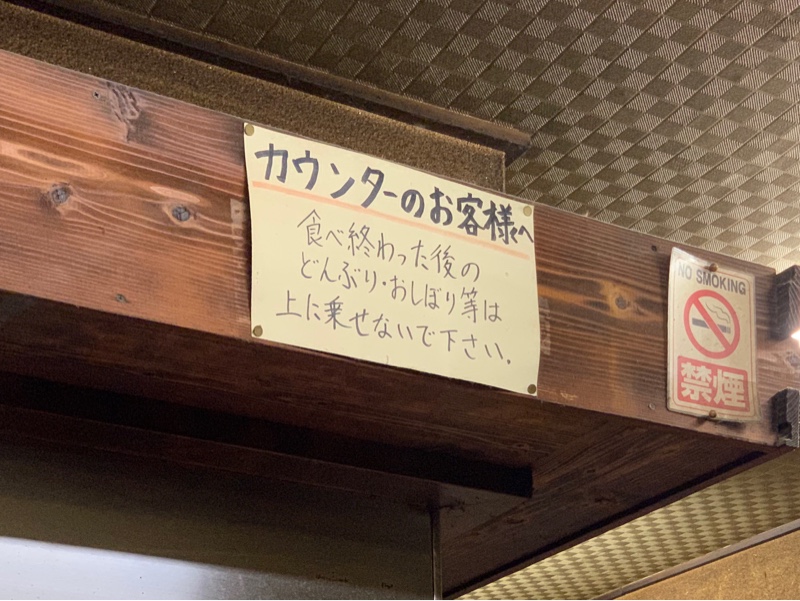 カウンターのお客様へ
食べ終わった後の
どんぶり・おしぼり等は
上に乗せないで下さい。
NO SMOKING
禁煙